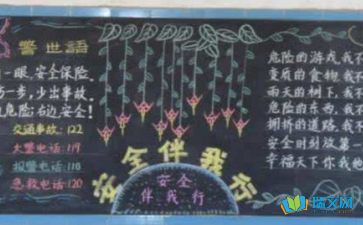 警世語
一眼,安全保险.
一步,少出事故.
危险;右边,安全!
交通事故:122
火警电话:119
报警电话:110
急救电话:120
安全伴我行
安全
伴我行
危险的游戏我不
变质的食物我不
雨天的树下,我不
危险的东西,我不
拥挤的道路,我不
安全时刻放第一
幸福天下你我他
瑞文网